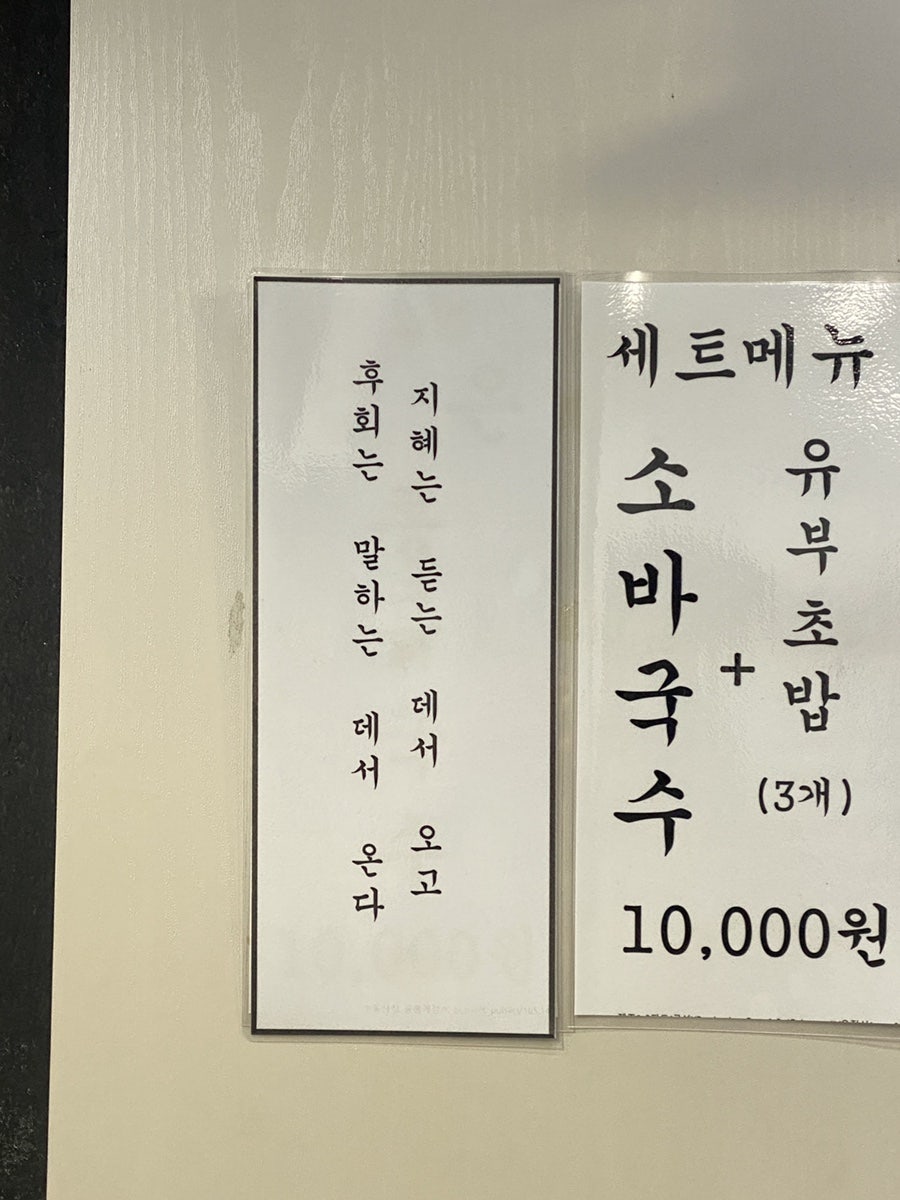 지혜는 듣는 데서 오고
후회는 말하는 데서 온다
세트메뉴
소바국수
+
유부초밥
(3개)
10,000원